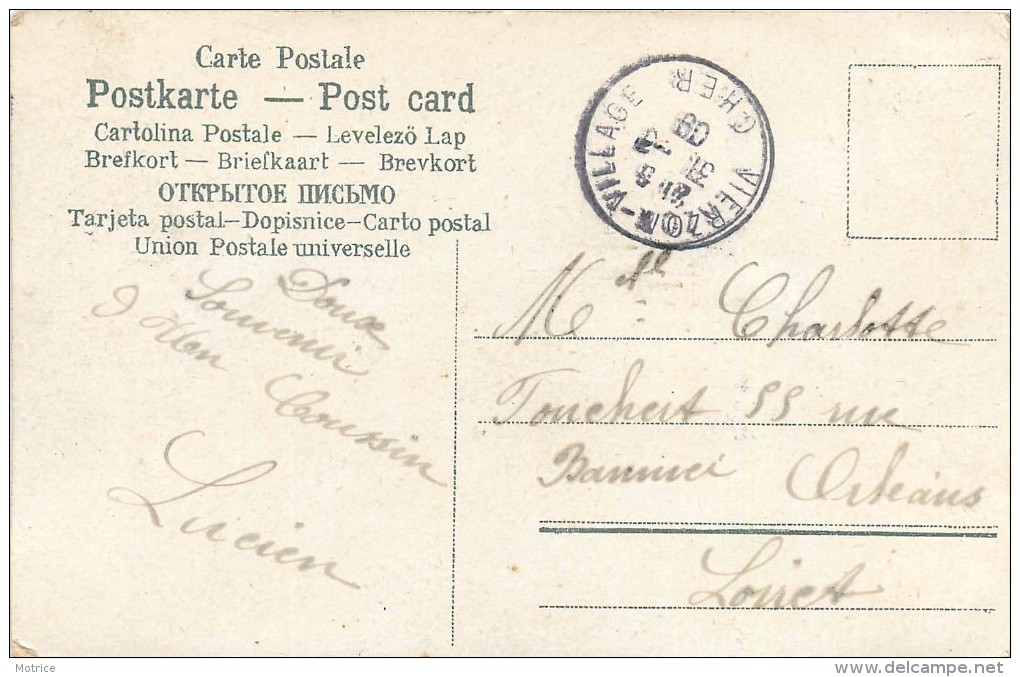 Carte Postale
Postkarte — Post card
Cartolina Postale — Levelező Lap
Brefkort — Briefkaart — Brevkort
ОТКРЫТОЕ ПИСЬМО
Tarjeta postal–Dopisnice–Carto postal
Union Postale universelle
VIERZON-VILLAGE CHER
31
09
Doux
Souvenir
d Mon Coussin
Lucien
Mlle Charlotte
Touchert 55 rue
Bannier Orléans
Loiret
Motrice
http://www.delcampe.net